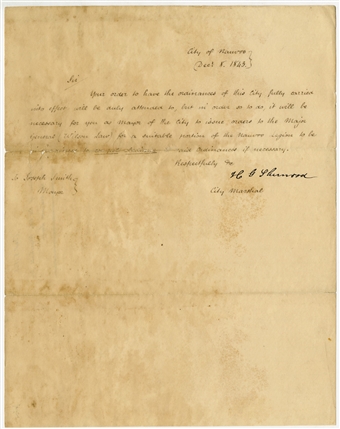 City of Nauvoo
Decr 8. 1843
Sir
Your order to have the ordinances of this City fully carried
into effect will be duly attended to, but in order so to do it will be
necessary for you as Mayor of the City to issue orders to the Major
General Wilson Law for a suitable portion of the Nauvoo Legion to be
said Ordinances if necessary.
Respectfully &c
To Joseph Smith
Mayor
H G Sherwood
City Marshal